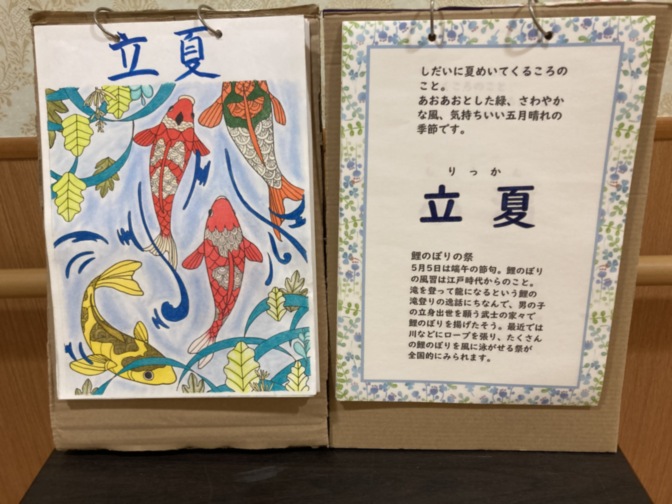 立夏
しだいに夏めいてくるころの
こと。
あおあおとした緑、さわやか
な風、気持ちいい五月晴れの
季節です。
りっか
立夏
鯉のぼりの祭
5月5日は端午の節句。鯉のぼり
の風習は江戸時代からのこと。
滝を登って龍になるという鯉の
滝登りの逸話にちなんで、男の子
の立身出世を願う武士の家々で
鯉のぼりを揚げたそう。最近では
川などにロープを張り、たくさん
の鯉のぼりを風に泳がせる祭が
全国的にみられます。